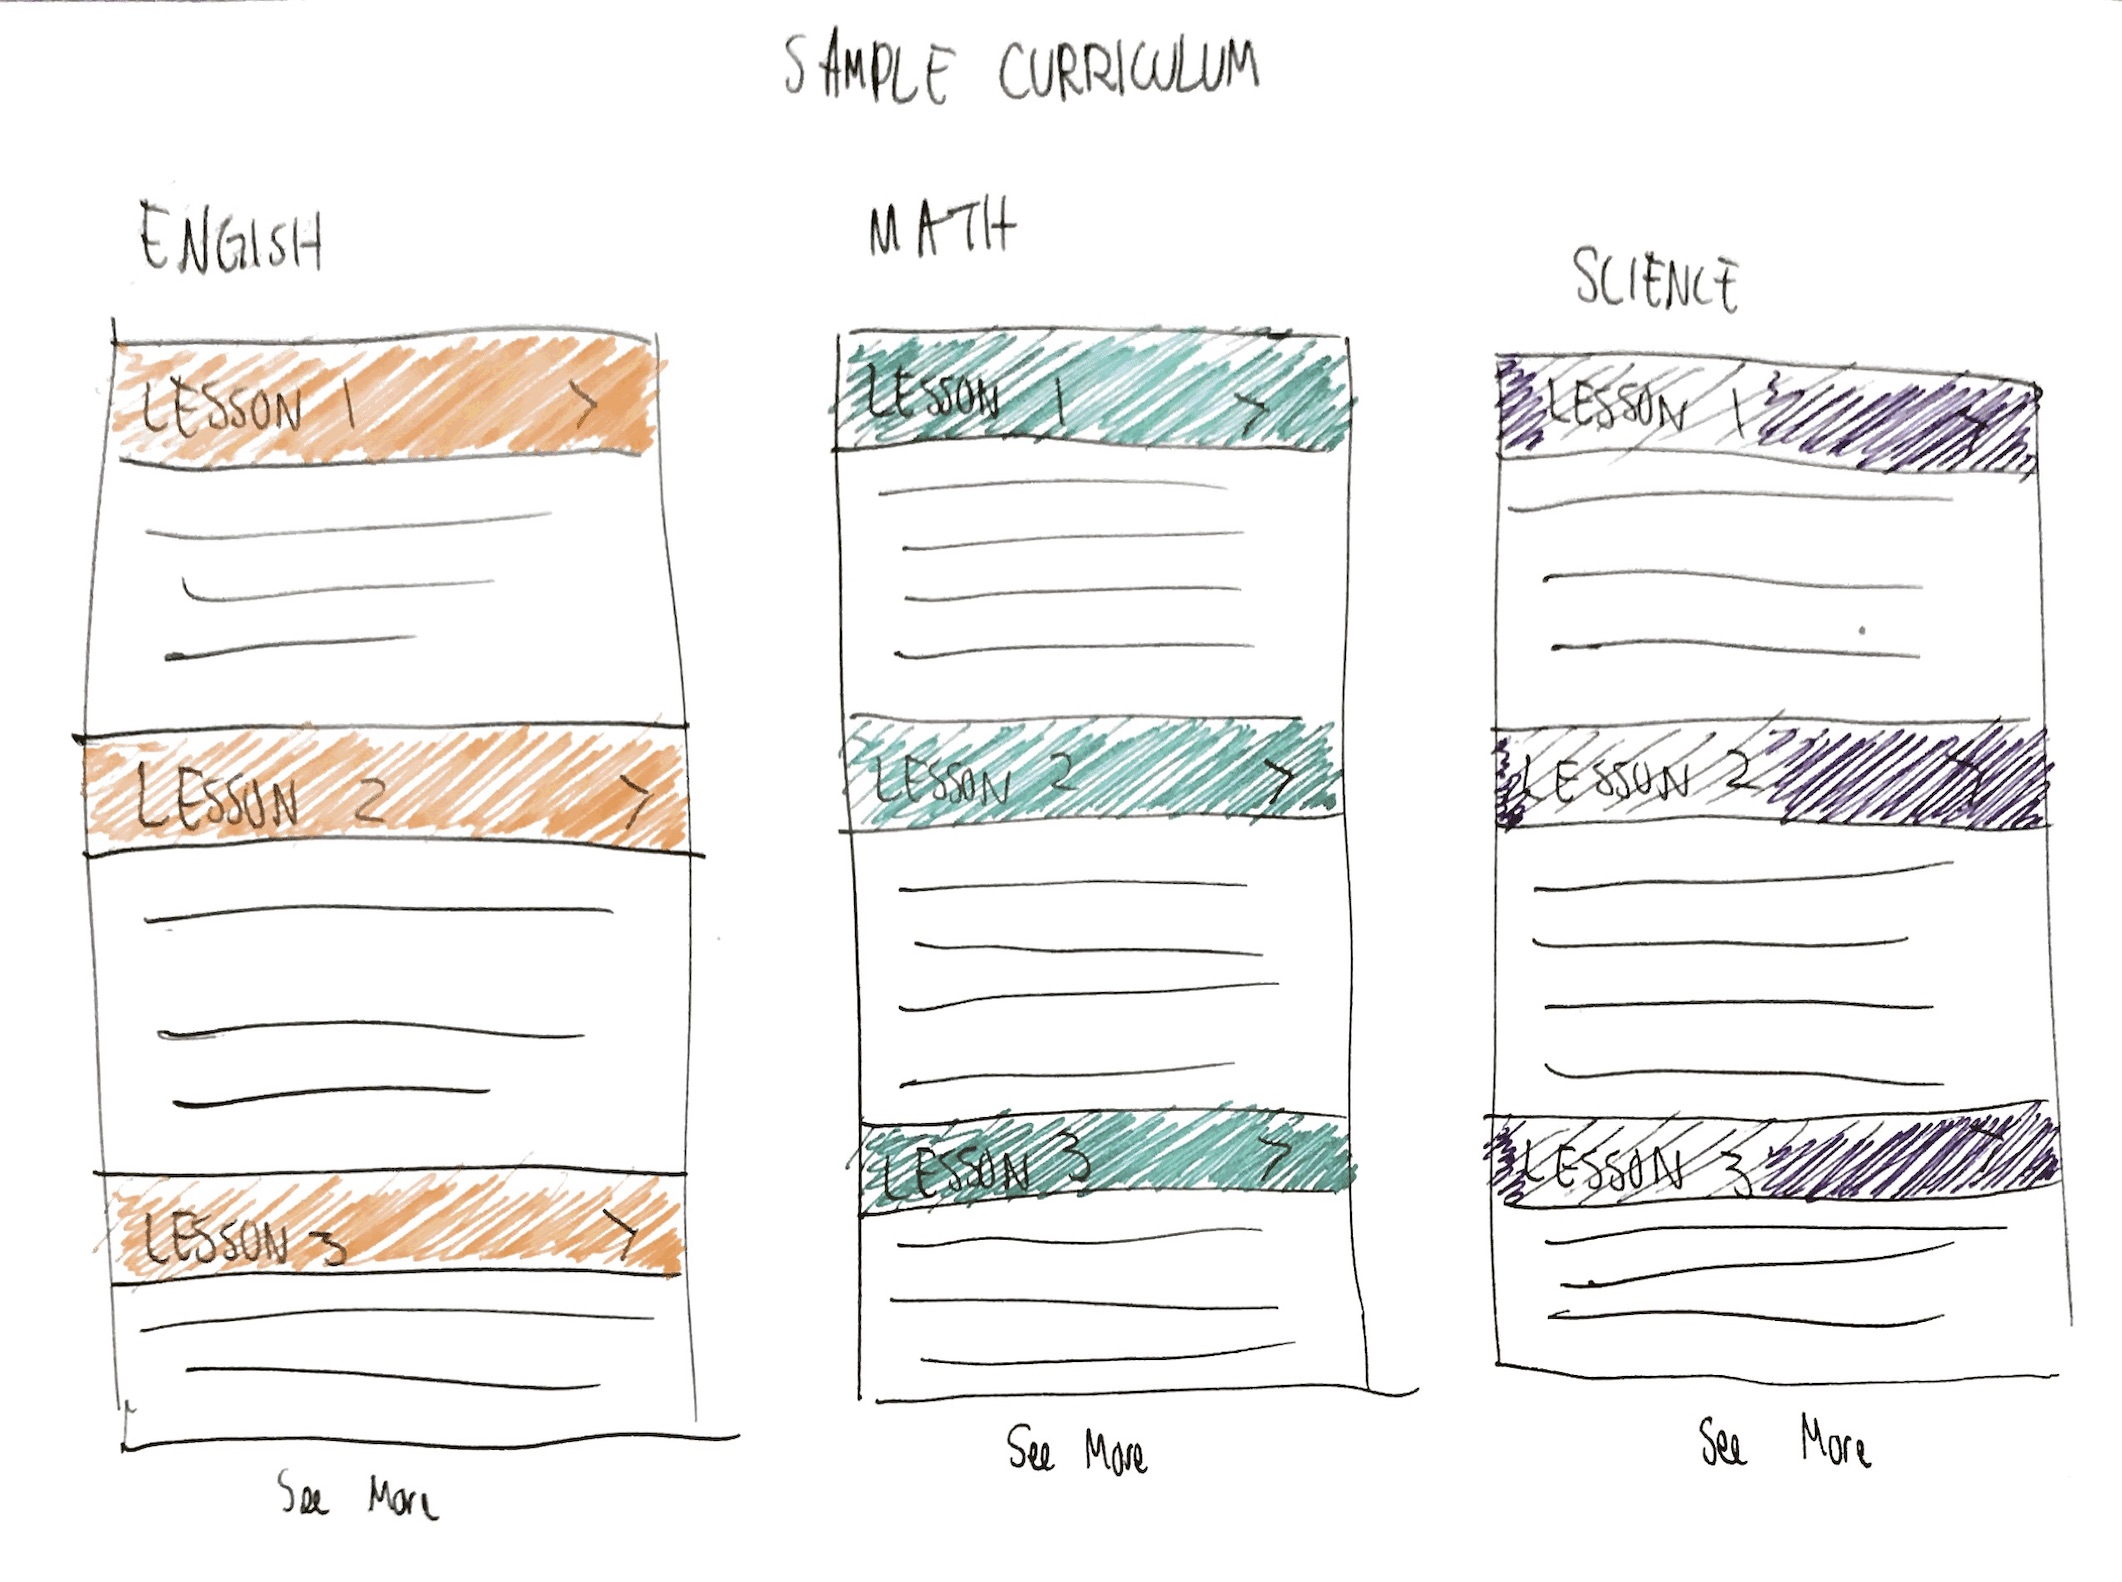 SAMPLE CURRICULUM
ENGLISH
LESSON 1 >
LESSON 2 >
LESSON 3 >
See More
MATH
LESSON 1 >
LESSON 2 >
LESSON 3 >
See More
SCIENCE
LESSON 1 >
LESSON 2 >
LESSON 3 >
See More